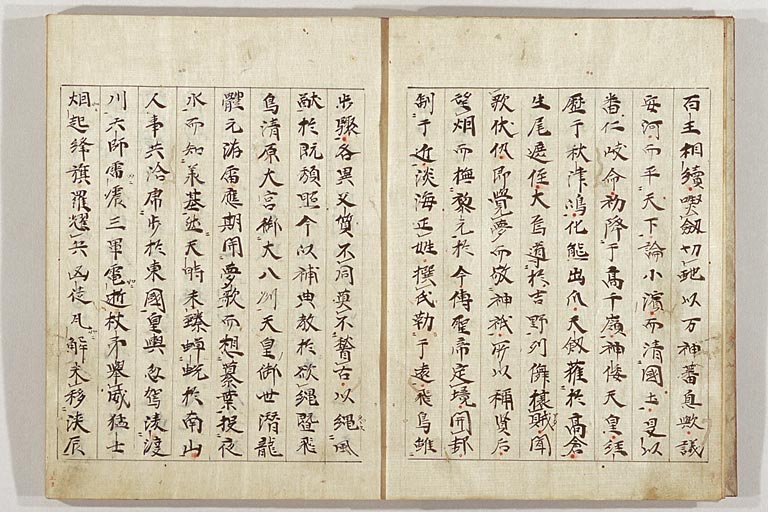 百王相續喫釼切虵以万神蕃息歟議
安河而平天下論小濱而清國土是以
番仁岐命初降于高千嶺神倭天皇經
歷于秋津嶋化熊出爪天釼獲於高倉
生尾遮徑大烏導於吉野列儛攘賊聞
歌伏仇即覺夢而敬神祇所以稱賢后
望烟而撫黎元於今傳聖帝定境開邦
制于近淡海正姓撰氏勒于遠飛鳥雖
步驟各異文質不同莫不替古以繩風
猷於既頽照今以補典教於欲絕曁飛
鳥清原大宮御大八洲天皇御世潛龍
體元洊雷應期開夢歌而想纂業投夜
水而知美基然天時未臻蟬蛻於南山
人事共洽虎步於東國皇輿忽駕凌渡
川六師雷震三軍電逝杖矛擧威猛士
烟起絳旗羅耀兵凶徒瓦解未移浹辰